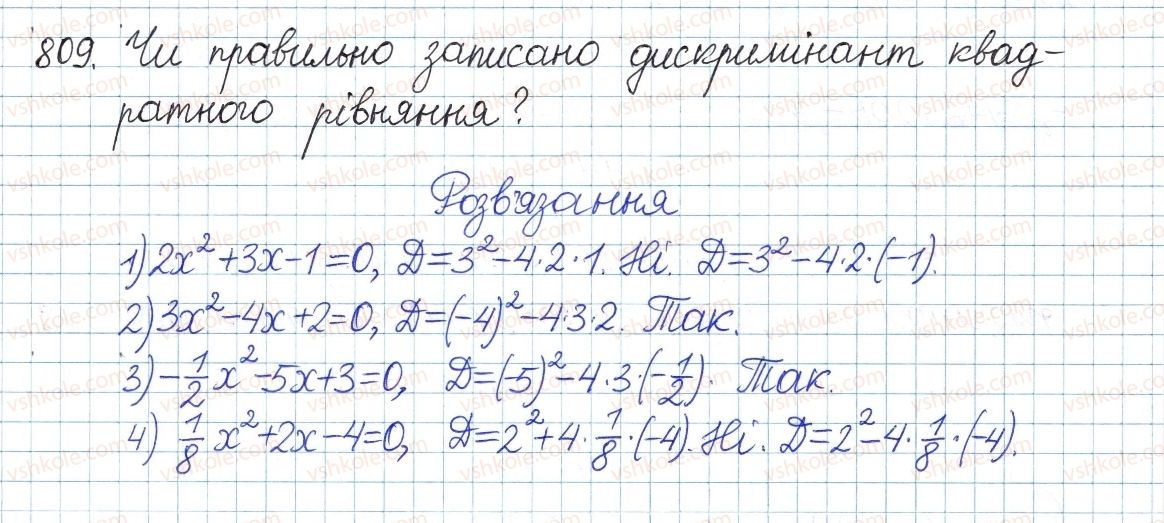 809. Чи правильно записано дискримінант квад-
ратного рівняння?
Розв'язання
1) 2x² + 3x - 1 = 0, D = 3² - 4·2·1. Ні. D = 3² - 4·2·(-1).
2) 3x² - 4x + 2 = 0, D = (-4)² - 4·3·2. Так.
3) -1/2 x² - 5x + 3 = 0, D = (-5)² - 4·3·(-1/2). Так.
4) 1/8 x² + 2x - 4 = 0, D = 2² + 4·1/8·(-4). Ні. D = 2² - 4·1/8·(-4).